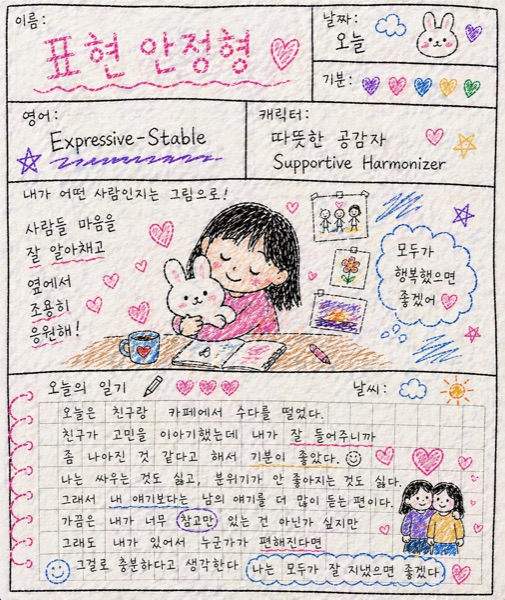 이름:
표현 안정형
날짜:
오늘
기분:
영어:
Expressive-Stable
캐릭터:
따뜻한 공감자
Supportive Harmonizer
내가 어떤 사람인지는 그림으로!
사람들 마음을
잘 알아채고
옆에서
조용히
응원해!
모두가
행복했으면
좋겠어
오늘의 일기
날씨:
오늘은 친구랑 카페에서 수다를 떨었다.
친구가 고민을 이야기했는데 내가 잘 들어주니까
좀 나아진 것 같다고 해서 기분이 좋았다.
나는 싸우는 것도 싫고, 분위기가 안 좋아지는 것도 싫다.
그래서 내 얘기보다는 남의 얘기를 더 많이 듣는 편이다.
가끔은 내가 너무 참고만 있는 건 아닌가 싶지만
그래도 내가 있어서 누군가가 편해진다면
그걸로 충분하다고 생각한다 나는 모두가 잘 지냈으면 좋겠다